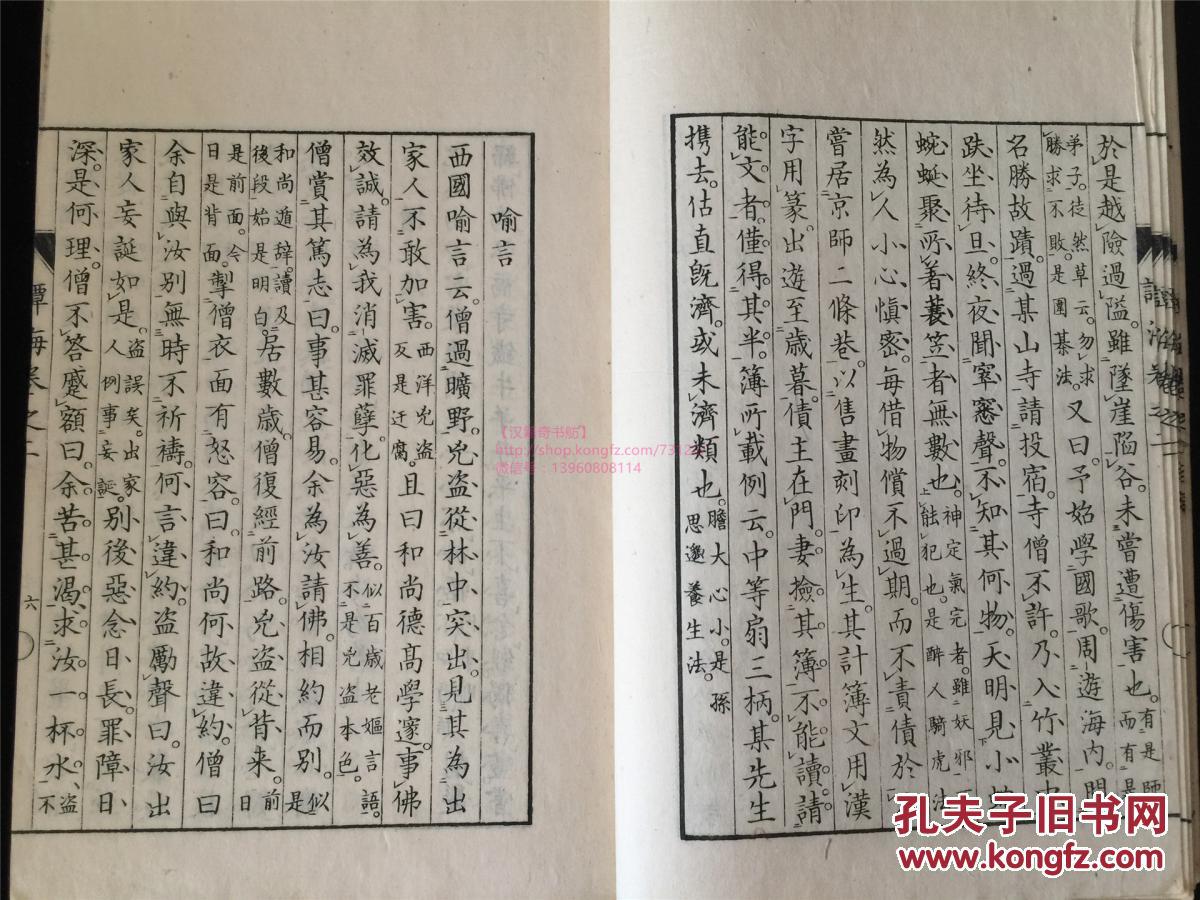 於是越險過隘。雖墜崖陷谷。未嘗遭傷害也。有是師而有是
弟子。徒然草云。勿求勝求不敗。是圍棊法。又曰。予始學國歌。周遊海内。
名勝故蹟。過某山寺請投宿。寺僧不許。乃入竹叢
趺坐待旦。終夜聞窣窸聲。不知其何物。天明見小
蜿蜒聚所著蓑笠者無數也。神定氣完者。雖妖邪不能犯也。是醉人騎虎法
然為人小心慎密。每借物償不過期。而不責債於
嘗居京師二條巷。以售畫刻印為生。其計簿文用漢
字用篆。出遊至歲暮。債主在門。妻撿其簿。不能讀。請
能文者。僅得其半。簿所載例云。中等扇三柄。某先生
携去。估直旣濟。或未濟類也。膽大心小。是孫思邈養生法。
譚海卷之二
喻言
西國喻言云。僧過曠野。兇盜從林中突出。見其為出
家人不敢加害。西洋兇盜反是迂腐。且曰和尚德高學邃。事佛
效誠。請為我消滅罪孽。化惡為善。似百歲老嫗言語。不是兇盜本色。
僧賞其篤志曰。事甚容易。余為汝請佛。相約而別。似是
和尚遁辞。讀及後段始是明白。居數歲。僧復經前路。兇盜從背来。前日
是前面。今日是背面。掣僧衣面有怒容。曰。和尚何故違約。僧曰
余自與汝別。無時不祈禱。何言違約。盜勵聲曰。汝出
家人妄誕如是。盜誤矣。出家人例事妄誕。別後惡念日長。罪障日
深。是何理。僧不答。蹙額曰。余苦甚渴。求汝一杯水。盜不
譚海卷之二
六
【汉籍奇书舫】
微信号：13960808114
孔夫子旧书网
www.kongfz.com